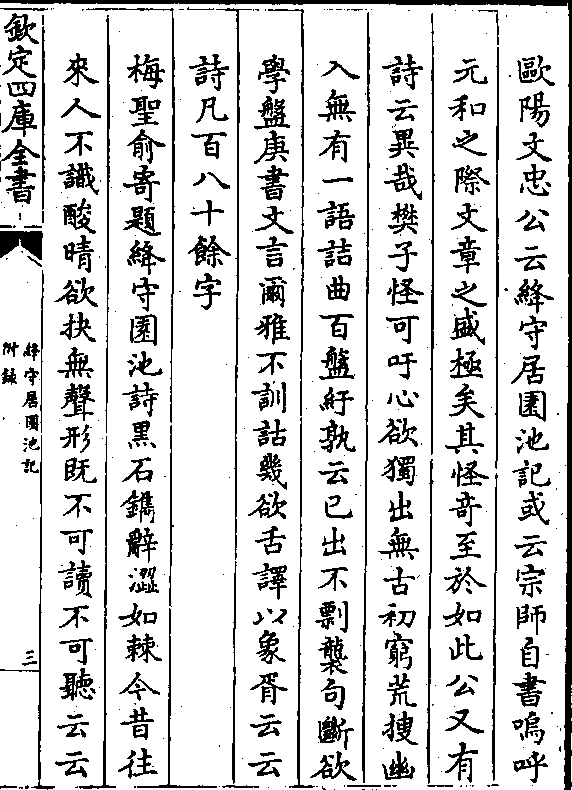 歐陽文忠公云絳守居園池記或云宗師自書嗚呼
元和之際文章之盛極矣其怪竒至於如此公又有
詩云異哉樊子怪可吁心欲獨出無古初窮荒搜幽
入無有一語詰曲百盤紆孰云已出不剽襲句斷欲
學盤庚書文言爾雅不訓詁幾欲舌譯以象胥云云
詩凡百八十餘字
梅聖俞寄題絳守園池詩黒石鐫辭澀如棘今昔往
來人不識酸晴欲抉無聲形旣不可讀不可聽云云
欽定四庫全書
絳守居園池記
附錄
三